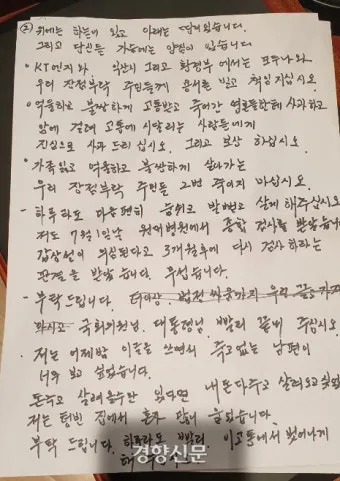 ② 위에는 하늘이 있고 아래는 땅이 있습니다.
그리고 당신들 가슴에는 양심이 있습니다
• KT엔지와 익산시 그리고 환경부에서는 모두 나와
우리 장점부락 주민들께 용서를 빌고 책임지십시오.
• 억울하고 불쌍하게 고통받고 죽어간 영혼들한테 사과하고
암에 걸려 고통에 시달리는 사람들에게
진심으로 사과 드리십시오. 그리고 보상 하십시오.
• 가족 잃고 억울하고 불쌍하게 살아가는
우리 장점부락 주민들 2번 죽이지 마십시오.
- 하루라도 마음편히 숨쉬고 발뻗고 살게 해주십시오
저도 7월 1일날 원대병원에서 종합 검사를 받았습니다
갑상선이 의심된다고 3개월후에 다시 검사 하라는
판결을 받았습니다. 무섭습니다.
- 부탁 드립니다. 더이상 법정 싸움까지 우리 끌고 가지
마시고 국회의원님. 대통령님. 빨리 끝내 주십시오.
• 저는 어제밤 이글을 쓰면서 죽고없는 남편이
너무 보고 싶었습니다.
돈주고 살려올수만 있다면 내돈 다주고 살려오고 싶었
저는 텅빈 집에서 혼자 많이 울었습니다.
부탁 드립니다. 하루라도 빨리 이고통에서 벗어나게
경향신문